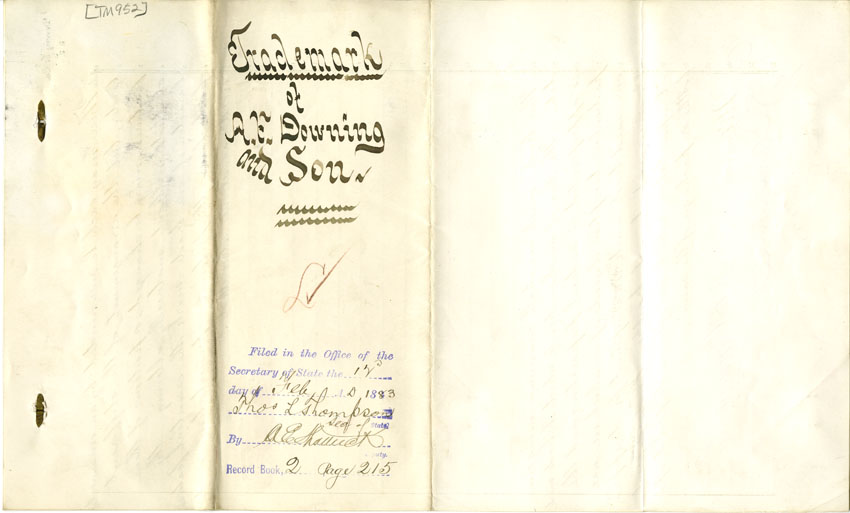 [TM952]
Trademark
of
A.F. Downing
and Son.
Filed in the Office of the
Secretary of State the
day of Feb A.D. 1883
Thos L Thompson
Secy of State
By A E Shattuck
Deputy.
Record Book, 2 Page 215